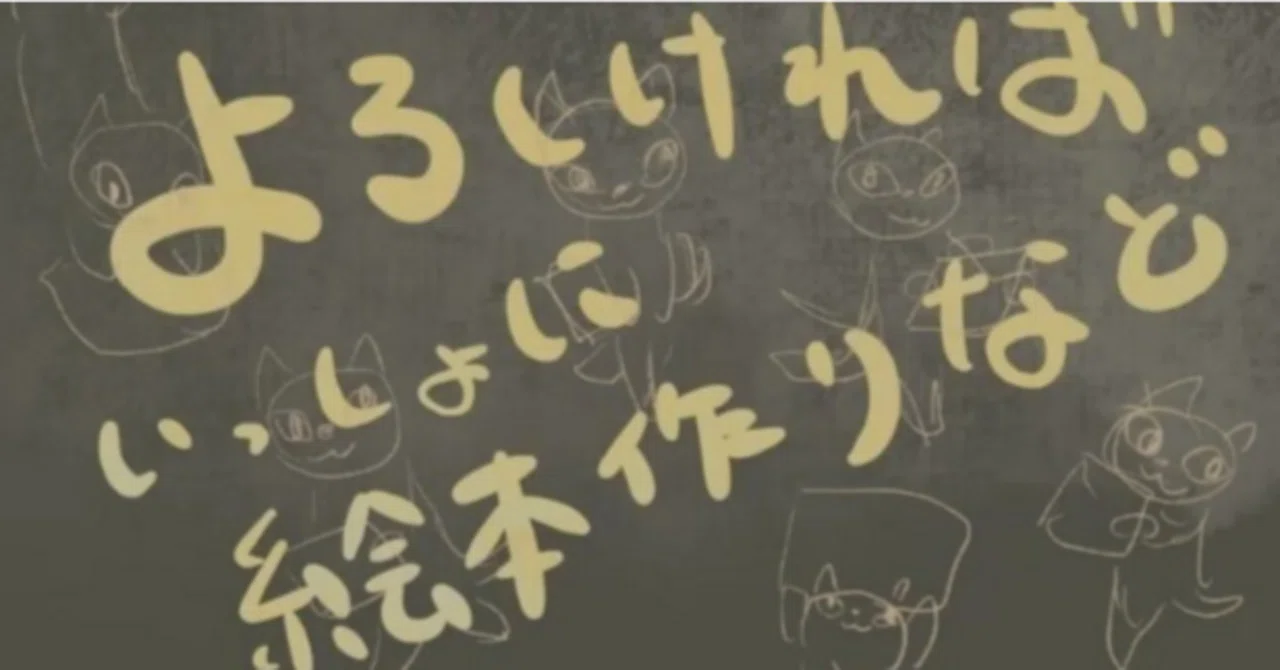 よろしければ
いっしょになど
絵本作り